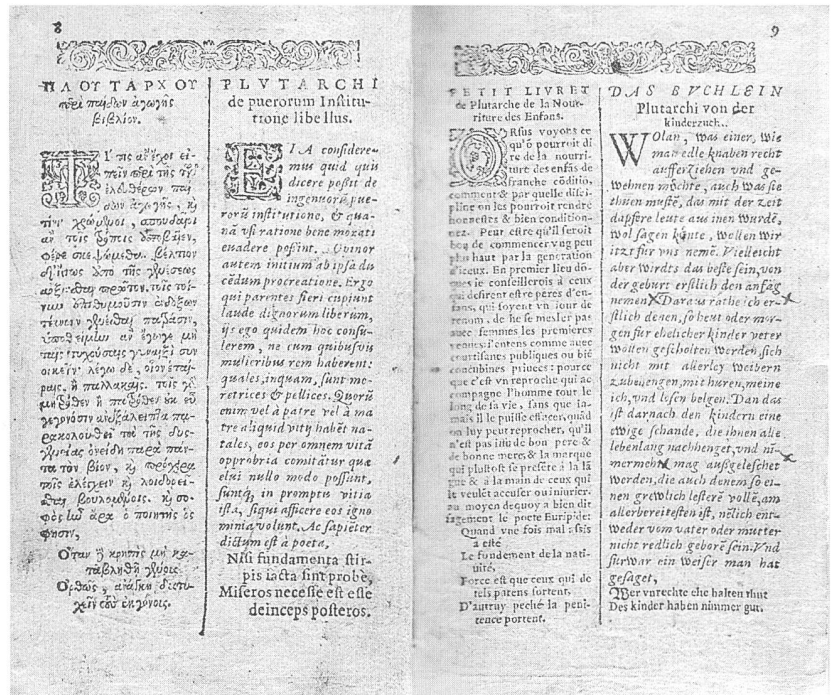 8
ΠΛΟΥΤΑΡΧΟΥ
περὶ παίδων ἀγωγῆς
βιβλίον.
Τί τις ἂν ἔχοι εἰ-
πεῖν περὶ τῆς τῶν
ἐλευθέρων παί-
δων ἀγωγῆς, καὶ
τίνι χρώμενοι, σπουδαῖοι
ἂν τοὺς τρόπους ἀποβαῖεν,
φέρε σκεψώμεθα. βέλτιον
δ' ἴσως ἀπὸ τῆς γενέσεως
ἄρξασθαι πρῶτον. τοῖς τοί-
νυν ἐπιθυμοῦσιν ἐνδόξων
τέκνων γενέσθαι πατράσιν,
ὑποθείμην ἂν ἔγωγε μὴ
ταῖς τυχούσαις γυναιξὶ συν
οικεῖν. λέγω δὲ, οἷον ἑταί-
ραις, ἢ παλλακαῖς. τοῖς γὰρ
μητρόθεν ἢ πατρόθεν οὐκ εὖ
γεγονόσιν ἀνεξάλειπτα πα-
ρακολουθεῖ τὰ τῆς δυς-
γενείας ὀνείδη παρὰ πάν-
τα τὸν βίον, καὶ πρόχειρα
τοῖς ἐλέγχειν καὶ λοιδορεῖ-
σθαι βουλομένοις. καὶ σο-
φὸς ἦν ἄρα ὁ ποιητὴς ὅς
φησιν,
Ὅταν ἡ κρηπὶς μὴ κα-
ταβληθῇ γένους
Ὀρθῶς, ἀνάγκη δυστυ-
χεῖν τοὺς ἐκγόνους.
PLVTARCHI
de puerorum Institu-
tione libellus.
EIA considere-
mus quid quis
dicere possit de
ingenuorũ pue-
rorũ institutione, & qua-
nã usi ratione bene morati
euadere possint. Quinor
autem initium ab ipsa du
cẽdum procreatione. Ergo
qui parentes fieri cupiunt
laude dignorum liberum,
ijs ego quidem hoc consu-
lerem, ne cum quibusuis
mulieribus rem haberent:
quales, inquam, sunt me-
retrices & pellices. Quorũ
enim vel à patre vel à ma
tre aliquid vitij habẽt na-
tales, eos per omnem vitã
opprobria comitãtur quæ
elui nullo modo possunt,
suntq́; in promptu vitia
ista, siqui afficere eos igno
minia volunt. Ac sapiẽter
dictum est à poeta,
Nisi fundamenta stir-
pis iacta sint probè,
Miseros necesse est esse
deinceps posteros.
9
PETIT LIVRET
de Plutarche de la Nour-
riture des Enfans.
ORsus voyons ce
qu'õ pourroit di
re de la nourri-
ture des enfãs de
franche cõditiõ,
comment & par quelle disci-
pline on les pourroit rendre
honnestes & bien condition-
nez. Peut estre qu'il seroit
bon de commencer vng peu
plus haut par la generation
d'iceux. En premier lieu dõ-
ques ie conseillerois à ceux
qui desirent estre peres d'en-
fans, qui soyent vn iour de
renom, de ne se mesler pas
auec femmes les premieres
venues: i'entens comme auec
courtisanes publiques ou biẽ
concubines priuees: pource
que c'est vn reproche qui ac-
compagne l'homme tout le
long de sa vie, sans que ia-
mais il le puisse effacer, quãd
on luy peut reprocher, qu'il
n'est pas issu de bon pere &
de bonne mere, & la marque
qui plustost se presẽte à la lã
gue & à la main de ceux qui
le veulẽt accuser ou iniurier.
au moyen dequoy a bien dit
sagement le poete Euripide:
Quand vne fois mal assis
a esté
Le fondement de la nati-
uité,
Force est que ceux qui de
tels parens sortent,
D'autruy peché la peni-
tence portent.
DAS BVCHLEIN
Plutarchi von der
kinderzuch..
WOlan, was einer, wie
man edle knaben recht
aufferziehen und ge-
wehnen möchte, auch was sie
thuen mustẽ, das mit der zeit
dapfere leute aus inen wurdẽ,
wol sagen künte, wollen wir
itzt für uns nemẽ. Vielleicht
aber wirdts das beste sein, von
der geburt erstlich den anfãg
nemen. Daraus rathe ich er-
stlich denen, so heut oder mor-
gen für ehelicher kinder veter
wollen gescholten werden, sich
nicht mit allerley weibern
zubehengen, mit huren, meine
ich, und lesen belgen. Dan das
ist darnach den kindern eine
ewige schande, die ihnen alle
lebenlang nachhenget, und ni-
mermeht mag außgeleschet
werden, die auch denem so ei-
nen grewlich lesterẽ vollẽ, am
allerbereitesten ist, nẽlich ent-
weder vom vater oder mutter
nicht redlich geborẽ sein. Vnd
fürwar ein weiser man hat
gesaget,
Wer vnrechte ehe halten thut
Des kinder haben nimmer gut.